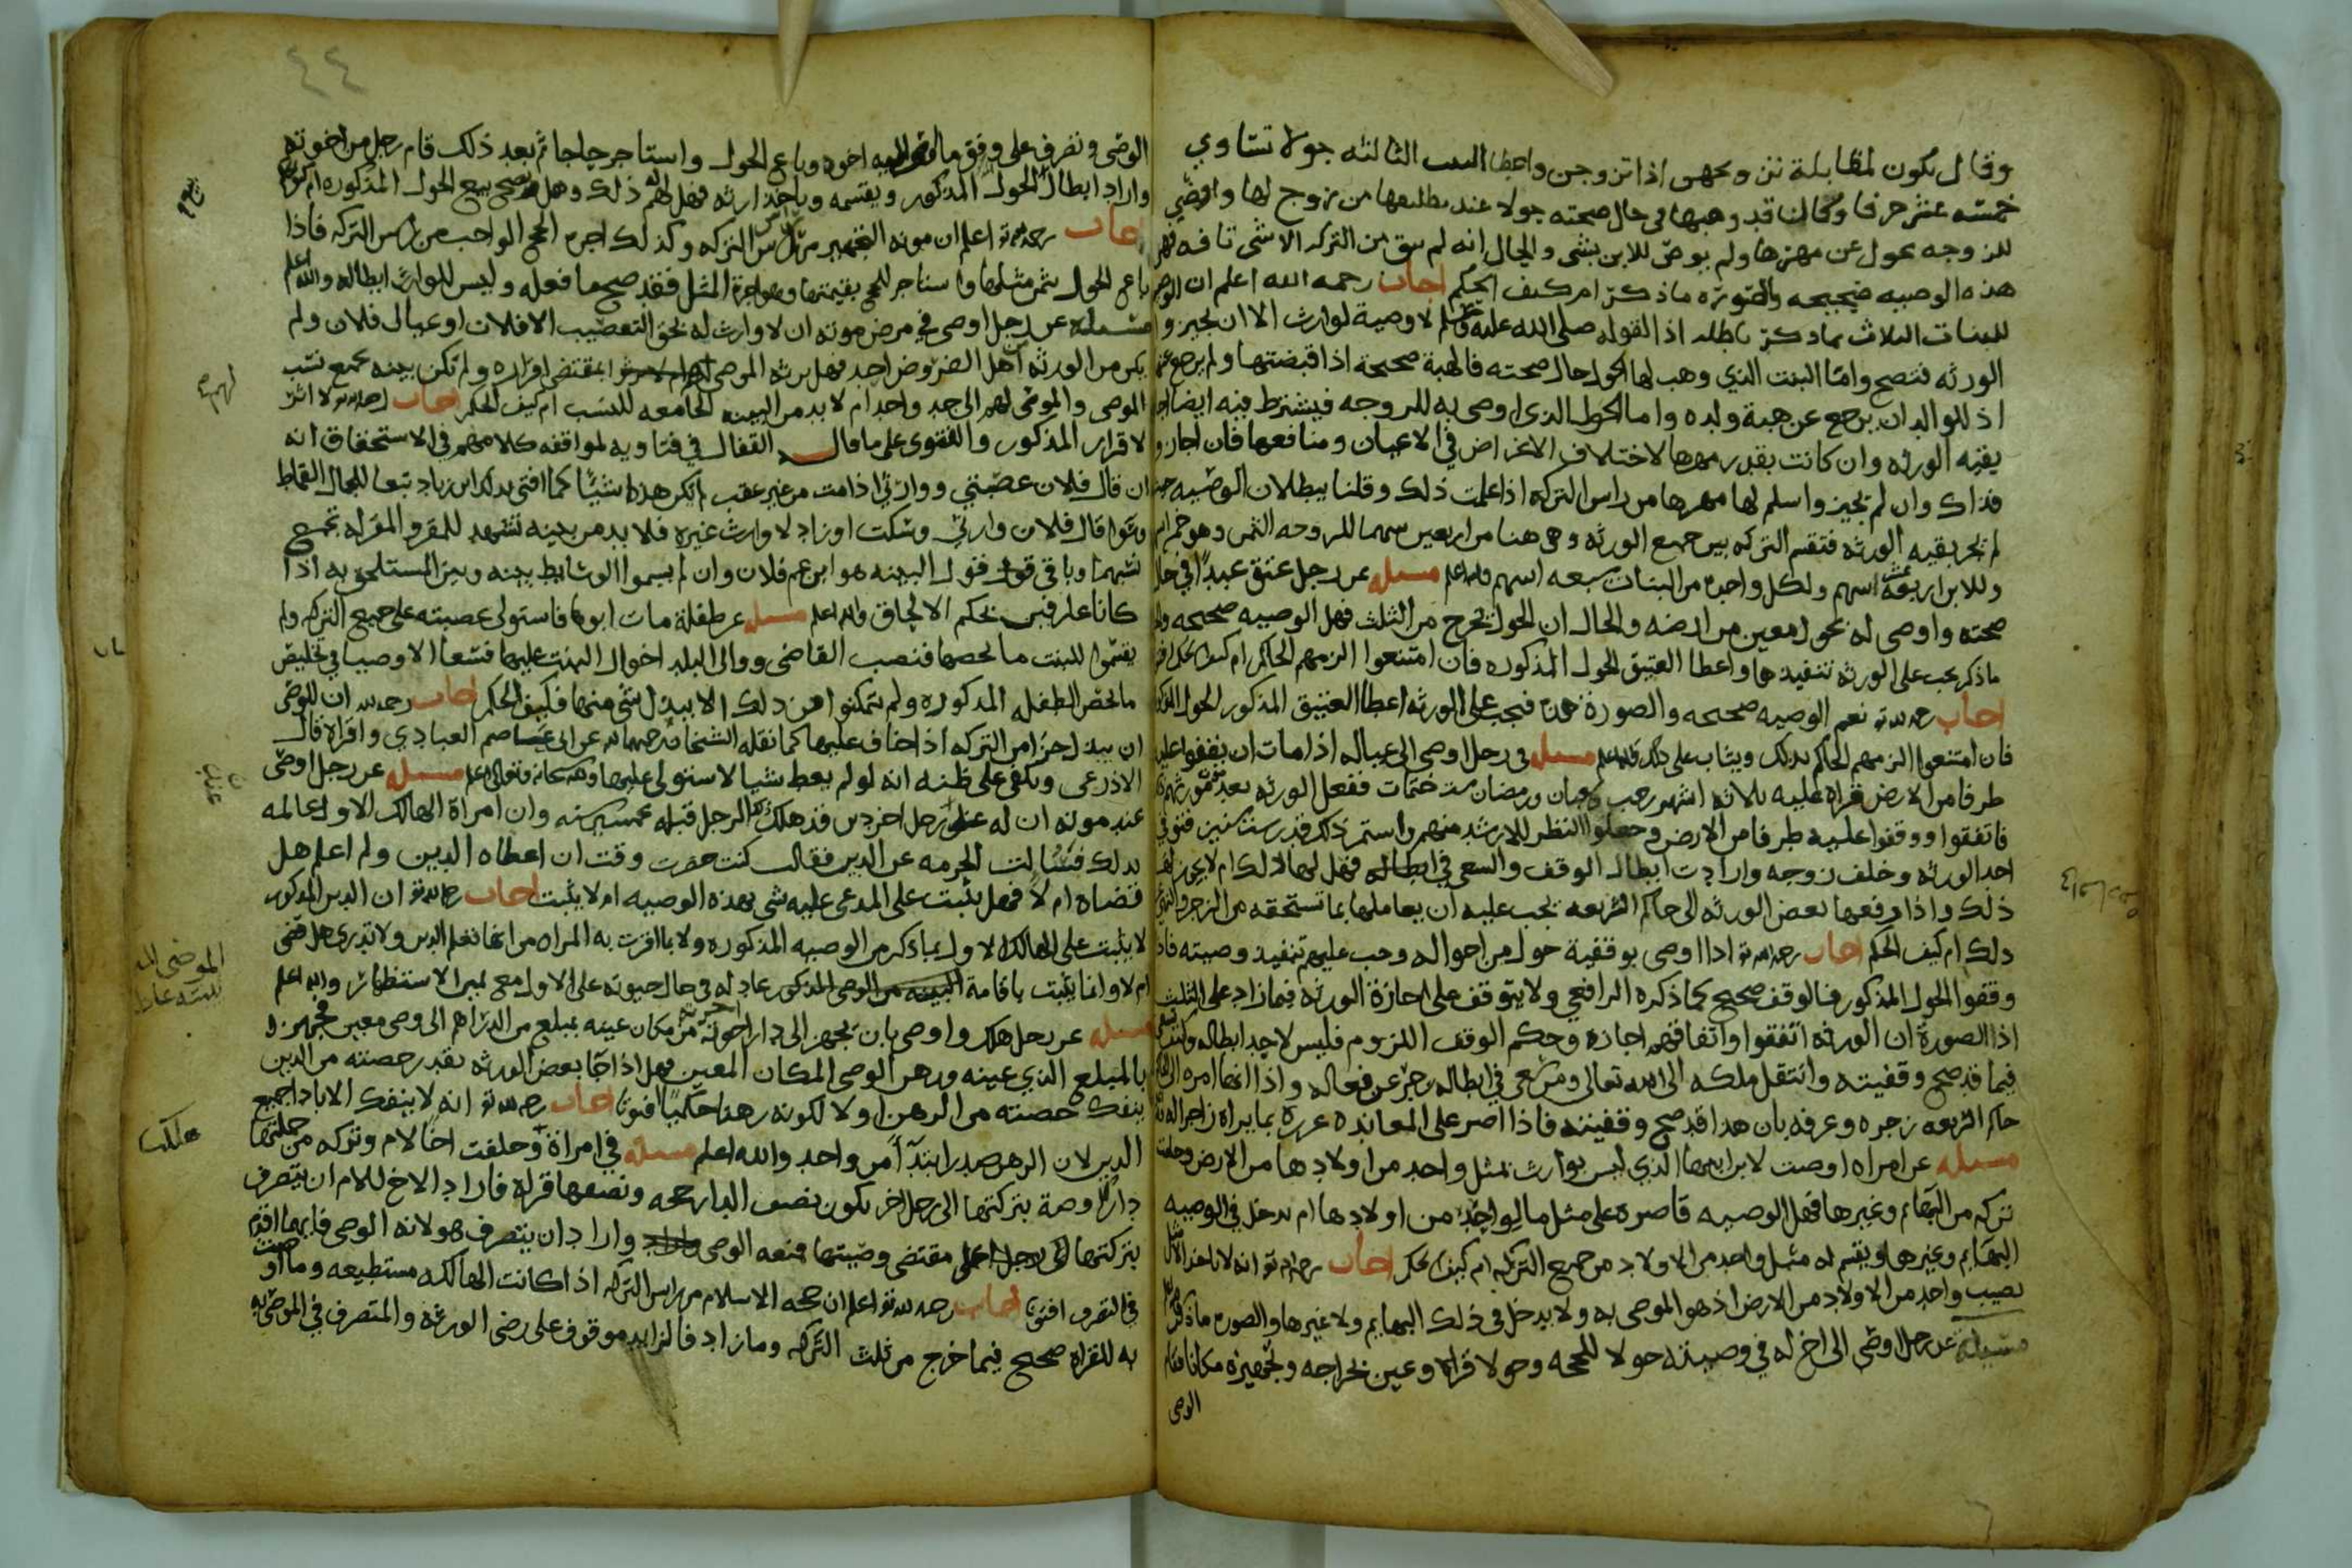 وقال يكون لمقابلة تزوجهن اذا تزوجن واعطا البنت الثالثه حولا تساوي
خمسه عشر حرفا وكان قد وهبها في حال صحته حولا عند مطلبها من زوج لها واوصى
للزوجه بحول عن مهرها ولم يوص للابن بشي والحال انه لم يبق من التركه الا شي تافه فهل
هذه الوصيه صحيحه والصوره ما ذكر ام كيف الحكم اجاب رحمه الله اعلم ان الوصيه
للبنات الثلاث بما ذكر باطله اذ القوله صلى الله عليه وسلم لا وصية لوارث الا ان يجيز
الورثه فتصح واما البنت الذي وهب لها الحول حال صحته فالهبة صحيحة اذا قبضتها ولم يرجع عنها
اذ للوالد ان يرجع عن هبة ولده واما الحول الذي اوصى به للزوجه فيشترط فيه ايضا اجازه
بقية الورثه وان كانت بقدر مهرها لاختلاف الاغراض في الاعيان ومنافعها فان اجازوا
فذاك وان لم تجيزوا سلم لها مهرها من راس التركه اذا علمت ذلك وقلنا ببطلان الوصيه حيث
لم يجز بقيه الورثه فتقسم التركه بين جميع الورثه وهي هنا من اربعين سهما للزوجه الثمن وهو خمسه اسهم
وللابن اربعة عشر اسهم ولكل واحده من البنات سبعه اسهم والله اعلم مسله عن رجل عتق عبدا في حال
صحته واوصى له بحول معين من ارضه والحال ان الحول يخرج من الثلث فهل الوصيه صحيحه والحال
ما ذكر يجب على الورثه تنفيذها واعطا العتيق الحول المذكوره فان امتنعوا الزمهم الحاكم ام كيف الحكم افتونا
اجاب رحمه الله تع نعم الوصيه صحيحه والصورة هذه فيجب على الورثه اعطا العتيق المذكور الحول المذكور
فان امتنعوا الزمهم الحاكم بذلك ويثاب على ذلك والله اعلم مسله في رجل اوصى الى عياله اذا مات ان يقفوا عليه
طرفا من الارض قراه عليه ثلاثه اشهر رجب وشعبان ورمضان ست ختمات ففعل الورثه بعد موت مورثهم
فاتفقوا ووقفوا عليه طرفا من الارض وجعلوا النظر للارشد منهم واستمر ذلك قدر ست سنين فتوفي
احد الورثه وخلف زوجه وارادت ابطال الوقف والسعي في ابطاله فهل لها ذلك ام لا يجوز لها
ذلك واذا رفعها بعض الورثه الى حاكم الشريعه يجب عليه ان يعاملها بما تستحقه من الزجر والنهي
ذلك ام كيف الحكم اجاب رحمه الله تع اذا اوصى بوقفية حول من احواله وجب عليهم تنفيذ وصيته فاذا
وقفوا الحول المذكور فالوقف صحيح كما ذكره الرافعي ولا يتوقف على اجازة الورثه فيما زاد على الثلث
اذ الصورة ان الورثه اتفقوا واتفاقهم اجازه وحكم الوقف اللزوم فليس لاحد ابطاله
فيما قد صح وقفيته وانتقل ملكه الى الله تعالى ومن سعى في ابطاله زجر عن فعاله واذا انها امره الى
حاكم الشريعه زجره وعرفه بان هذا قد صح وقفيته فاذا اصر على المعانده عزره بما يراه زاجرا له
مسله عن امراه اوصت لابن ابنها الذي ليس بوارث بمثل واحد من اولادها من الارض وخلفت
تركه من البهائم وغيرها فهل الوصيه قاصره على مثل ما لواحد من اولادها ام تدخل في الوصيه
البهائم وغيرها ويقسم له مثل واحد من الاولاد من جميع التركه ام كيف الحكم اجاب رحمه الله تع انه لا ياخذ الا مثل
نصيب واحد من الاولاد من الارض اذ هو الموصى به ولا يدخل في ذلك البهايم ولا غيرها والصوره ما ذكر
مسئلة عن رجل اوصى الى اخ له في وصيته حولا للحجه وحولا قراة وعين لخراجه وتجهيزه مكانا فقام
الوصي
٤٤
الوصي وتصرف على وفق ما اوصى اليه اخوه وباع الحول واستاجر حاجا ثم بعد ذلك قام رجل من اخوته
واراد ابطال الحول المذكور ويقسمه وياخذ ارثه فهل له ذلك وهل يصح بيع الحول المذكوره ام كيف
اجاب رحمه الله تع اعلم ان مونه التجهيز من راس التركه وكذلك اجره الحج الواجب من راس التركه فاذا
باع الحول بثمن مثلها واستاجر للحج بقيمتها وهو اجرة المثل فقد صح ما فعله وليس للوارث ابطاله والله اعلم
مسئلة عن رجل اوصى في مرض موته ان لا وارث له بحق التعصيب الا فلان او عيال فلان ولم
يكن من الورثه اهل الفروض احد فهل يرثه الموصى بمقتضى اقراره ولم تكن بينه تجمع نسب
الموصي والموصى لهم الى جد واحد ام لا بد من البينه الجامعه للنسب ام كيف الحكم اجاب رحمه الله لا اثر
لاقرار المذكور والفتوى على ما قال القفال في فتاويه لموافقه كلامهم في الاستحقاق انه
ان قال فلان عصبتي ووارثي اذا مت من غير عقب لم يكن هذا شيئا كما افتى بذلك ابن زياد تبعا للجمال القماط
وسوا قال فلان وارثي وسكت او زاد لا وارث غيره فلا بد من بينه تشهد للمقر والمقر له تجمع
نسبهما وباقي قول البينه هو ابن عم فلان وان لم يسموا الوسائط بينه وبين المستلحق به اذا
كانا على قبس بحكم الالحاق والله اعلم مسله عن طفلة مات ابوها فاستولى عصبته على جميع التركه ولم
يقسموا للبنت ما يخصها فنصب القاضي ووالى البلد اخوال البنت عليها فسعا الاوصيا في تخليص
ما يخص الطفله المذكوره ولم يتمكنوا من ذلك الا ببذل شي منها فكيف الحكم اجاب رحمه الله ان للوصي
ان يبذل جزا من التركه اذا خاف عليها كما نقله الشيخان رحمهما الله عن ابي عاصم العبادي واقراه قال
الاذرعي ويكفي على ظنه انه لو لم يعط شيا لاستولى عليها والله سبحانه وتعالى اعلم مسله عن رجل اوصى
عند موته ان له على رجل اخر دين قد هلك الرجل قبله بخمسين سنه وان امراة الهالك الاول عالمه
بذلك فسالت الحرمه عن الدين فقالت كنت حضرت وقت ان اعطاه الدين ولم اعلم هل
قضاه ام لا فهل يثبت على المدعى عليه شي بهذه الوصيه ام لا يثبت اجاب رحمه الله تع ان الدين المذكور
لا يثبت على الهالك الاول بما ذكر من الوصيه المذكوره ولا بما اقرت به المراه من انها تعلم الدين ولا تدري هل قضى
ام لا وانما يثبت باقامة البينه من الوصي المذكور عادله في حال حيوته على الاول مع يمين الاستظهار والله اعلم
مسله عن رجل هلك واوصى بان يجهز الى دار اخرته من مكان عينه بمبلغ من الدراهم الى وصي معين فجهزه
بالمبلغ الذي عينه ورهن الوصي المكان المعين فهل اذا جا بعض الورثه بقدر حصته من الدين
ينفك حصته من الرهن او لا لكونه رهنا حكميا افتونا اجاب رحمه الله تع انه لا ينفك الا باداء جميع
الدين لان الرهن صدر ابتدآ من واحد والله اعلم مسله في امراة وخلفت اخا لام وتركه من جملتها
دارا وصة بتركتها الى رجل اخر يكون نصف الدار حجه ونصفها قراة فاراد الاخ للام ان يتصرف
بتركتها على مقتضى وصيتها فمنعه الوصي واراد ان يتصرف هو لانه الوصي فايهما اقدم
في التصرف افتونا اجاب رحمه الله تع اعلم ان حجه الاسلام من راس التركه اذا كانت الهالكه مستطيعه وما اوصت
به للقراة صحيح فيما خرج من ثلث التركه وما زاد فالزايد موقوف على رضى الورثه والمتصرف في الموصى به